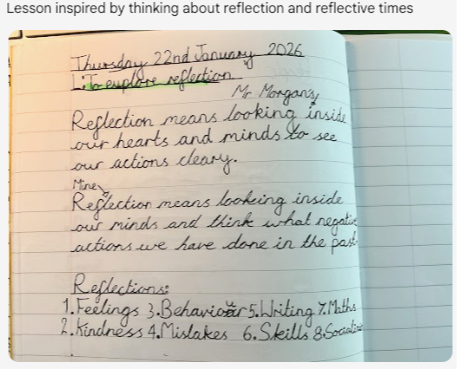 Lesson inspired by thinking about reflection and reflective times
Thursday 22nd January 2026
L.To explore reflection
Mr Morgans
Reflection means looking inside
our hearts and minds to see
our actions cleary.
Mine
Reflection means looking inside
our minds and think what negative
actions we have done in the past.
Reflections:
1.Feelings 3.Behaviour 5.Writing 7.Maths
2.Kindness 4.Mistakes 6.Skills 8.